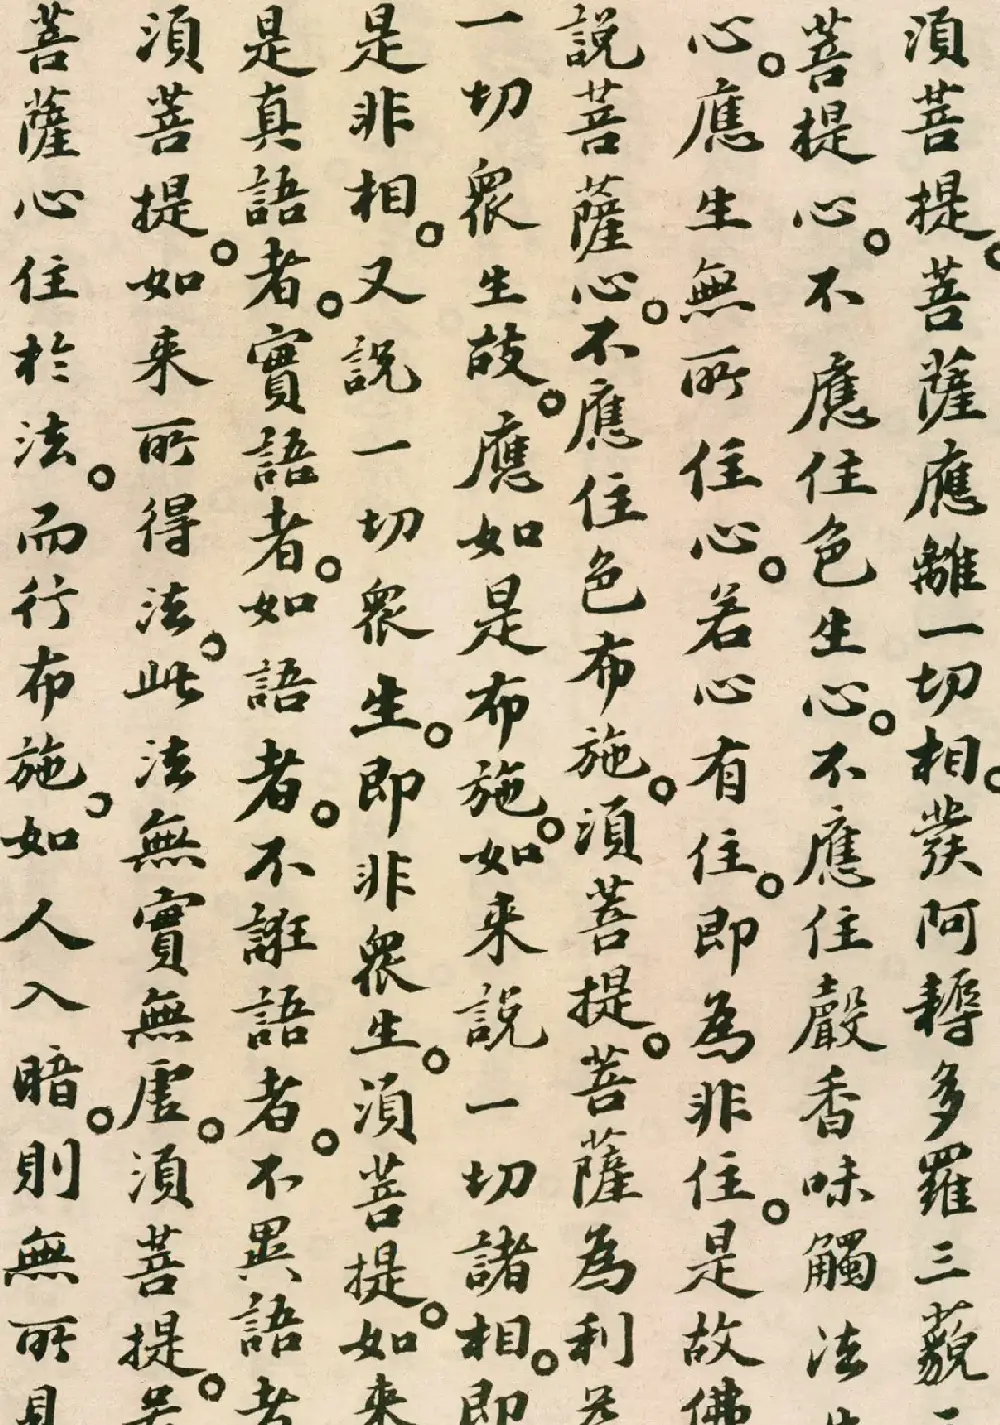 須菩提。菩薩應離一切相。發阿耨多羅三藐
菩提心。不應住色生心。不應住聲香味觸法生
心。應生無所住心。若心有住。即為非住。是故佛
說菩薩心。不應住色布施。須菩提。菩薩為利益
一切眾生故。應如是布施。如來說一切諸相。即
是非相。又說一切眾生。即非眾生。須菩提。如來
是真語者。實語者。如語者。不誑語者。不異語者
須菩提。如來所得法。此法無實無虛。須菩提。若
菩薩心住於法。而行布施。如人入暗。則無所見